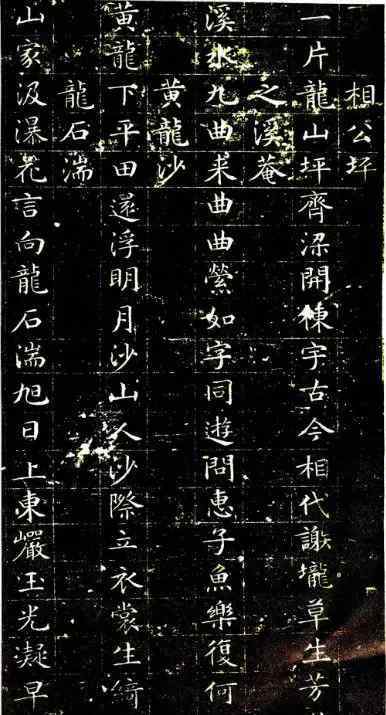 相公坪
一片龍山坪齊梁開棟宇古今相代謝壠草生芳
之溪菴
溪水九曲来曲曲縈如字同遊問惠子魚樂復何
黃龍沙
黃龍下平田遠浮明月沙山人沙際立衣裳生綺
龍石湍
山家汲瀑花言向龍石湍旭日上東巖玉光凝早